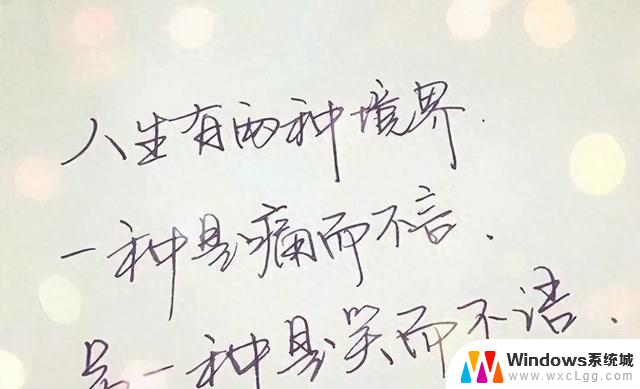 人生有两种境界.
一种是痛而不言.
另一种是笑而不语.
Windows系统城
www.wxcLgg.com